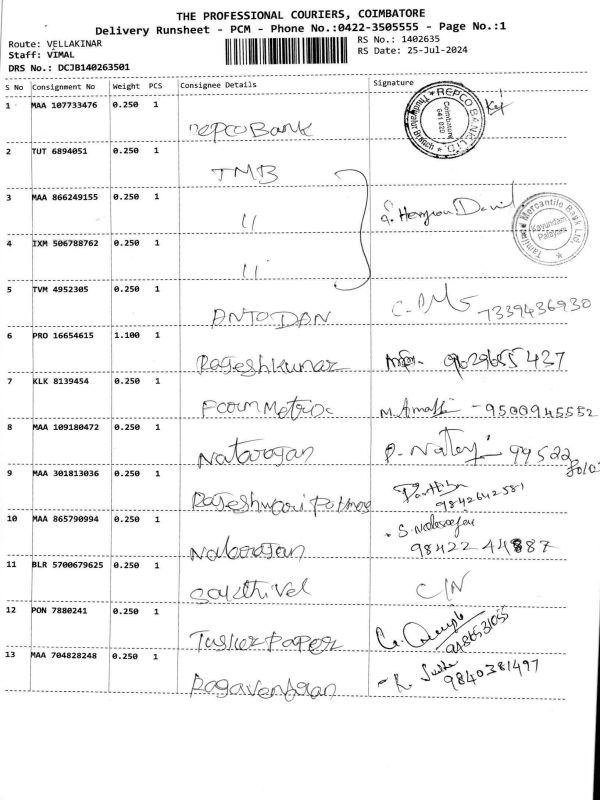 THE PROFESSIONAL COURIERS, COIMBATORE
Delivery Runsheet - PCM - Phone No.:0422-3505555 - Page No.:1
Route: VELLAKINAR
Staff: VIMAL
DRS No.: DCJB140263501
RS No.: 1402635
RS Date: 25-Jul-2024
S No Consignment No Weight PCS Consignee Details Signature
1 MAA 107733476 0.250 1 repco Bank
REPCO BANK LTD. Coimbatore 641 029
2 TUT 6894051 0.250 1 TMB
3 MAA 866249155 0.250 1 11 David
Tamilnad Mercantile Bank Ltd., Kavundam Palayam
4 IXM 506788762 0.250 1 11
5 TVM 4952305 0.250 1 ANTO DAN 7339436930
6 PRO 16654615 1.100 1 Rageshkumar 9629655437
7 KLK 8139454 0.250 1 - 9500945552
8 MAA 109180472 0.250 1 Natarajan 99522
9 MAA 301813036 0.250 1 Rajeshwari 9842642581
10 MAA 865790994 0.250 1 Natarajan 98422 44887
11 BLR 5700679625 0.250 1 Sakthivel C/N
12 PON 7880241 0.250 1 Tusker Paper
13 MAA 704828248 0.250 1 Ragavendran 9840381497